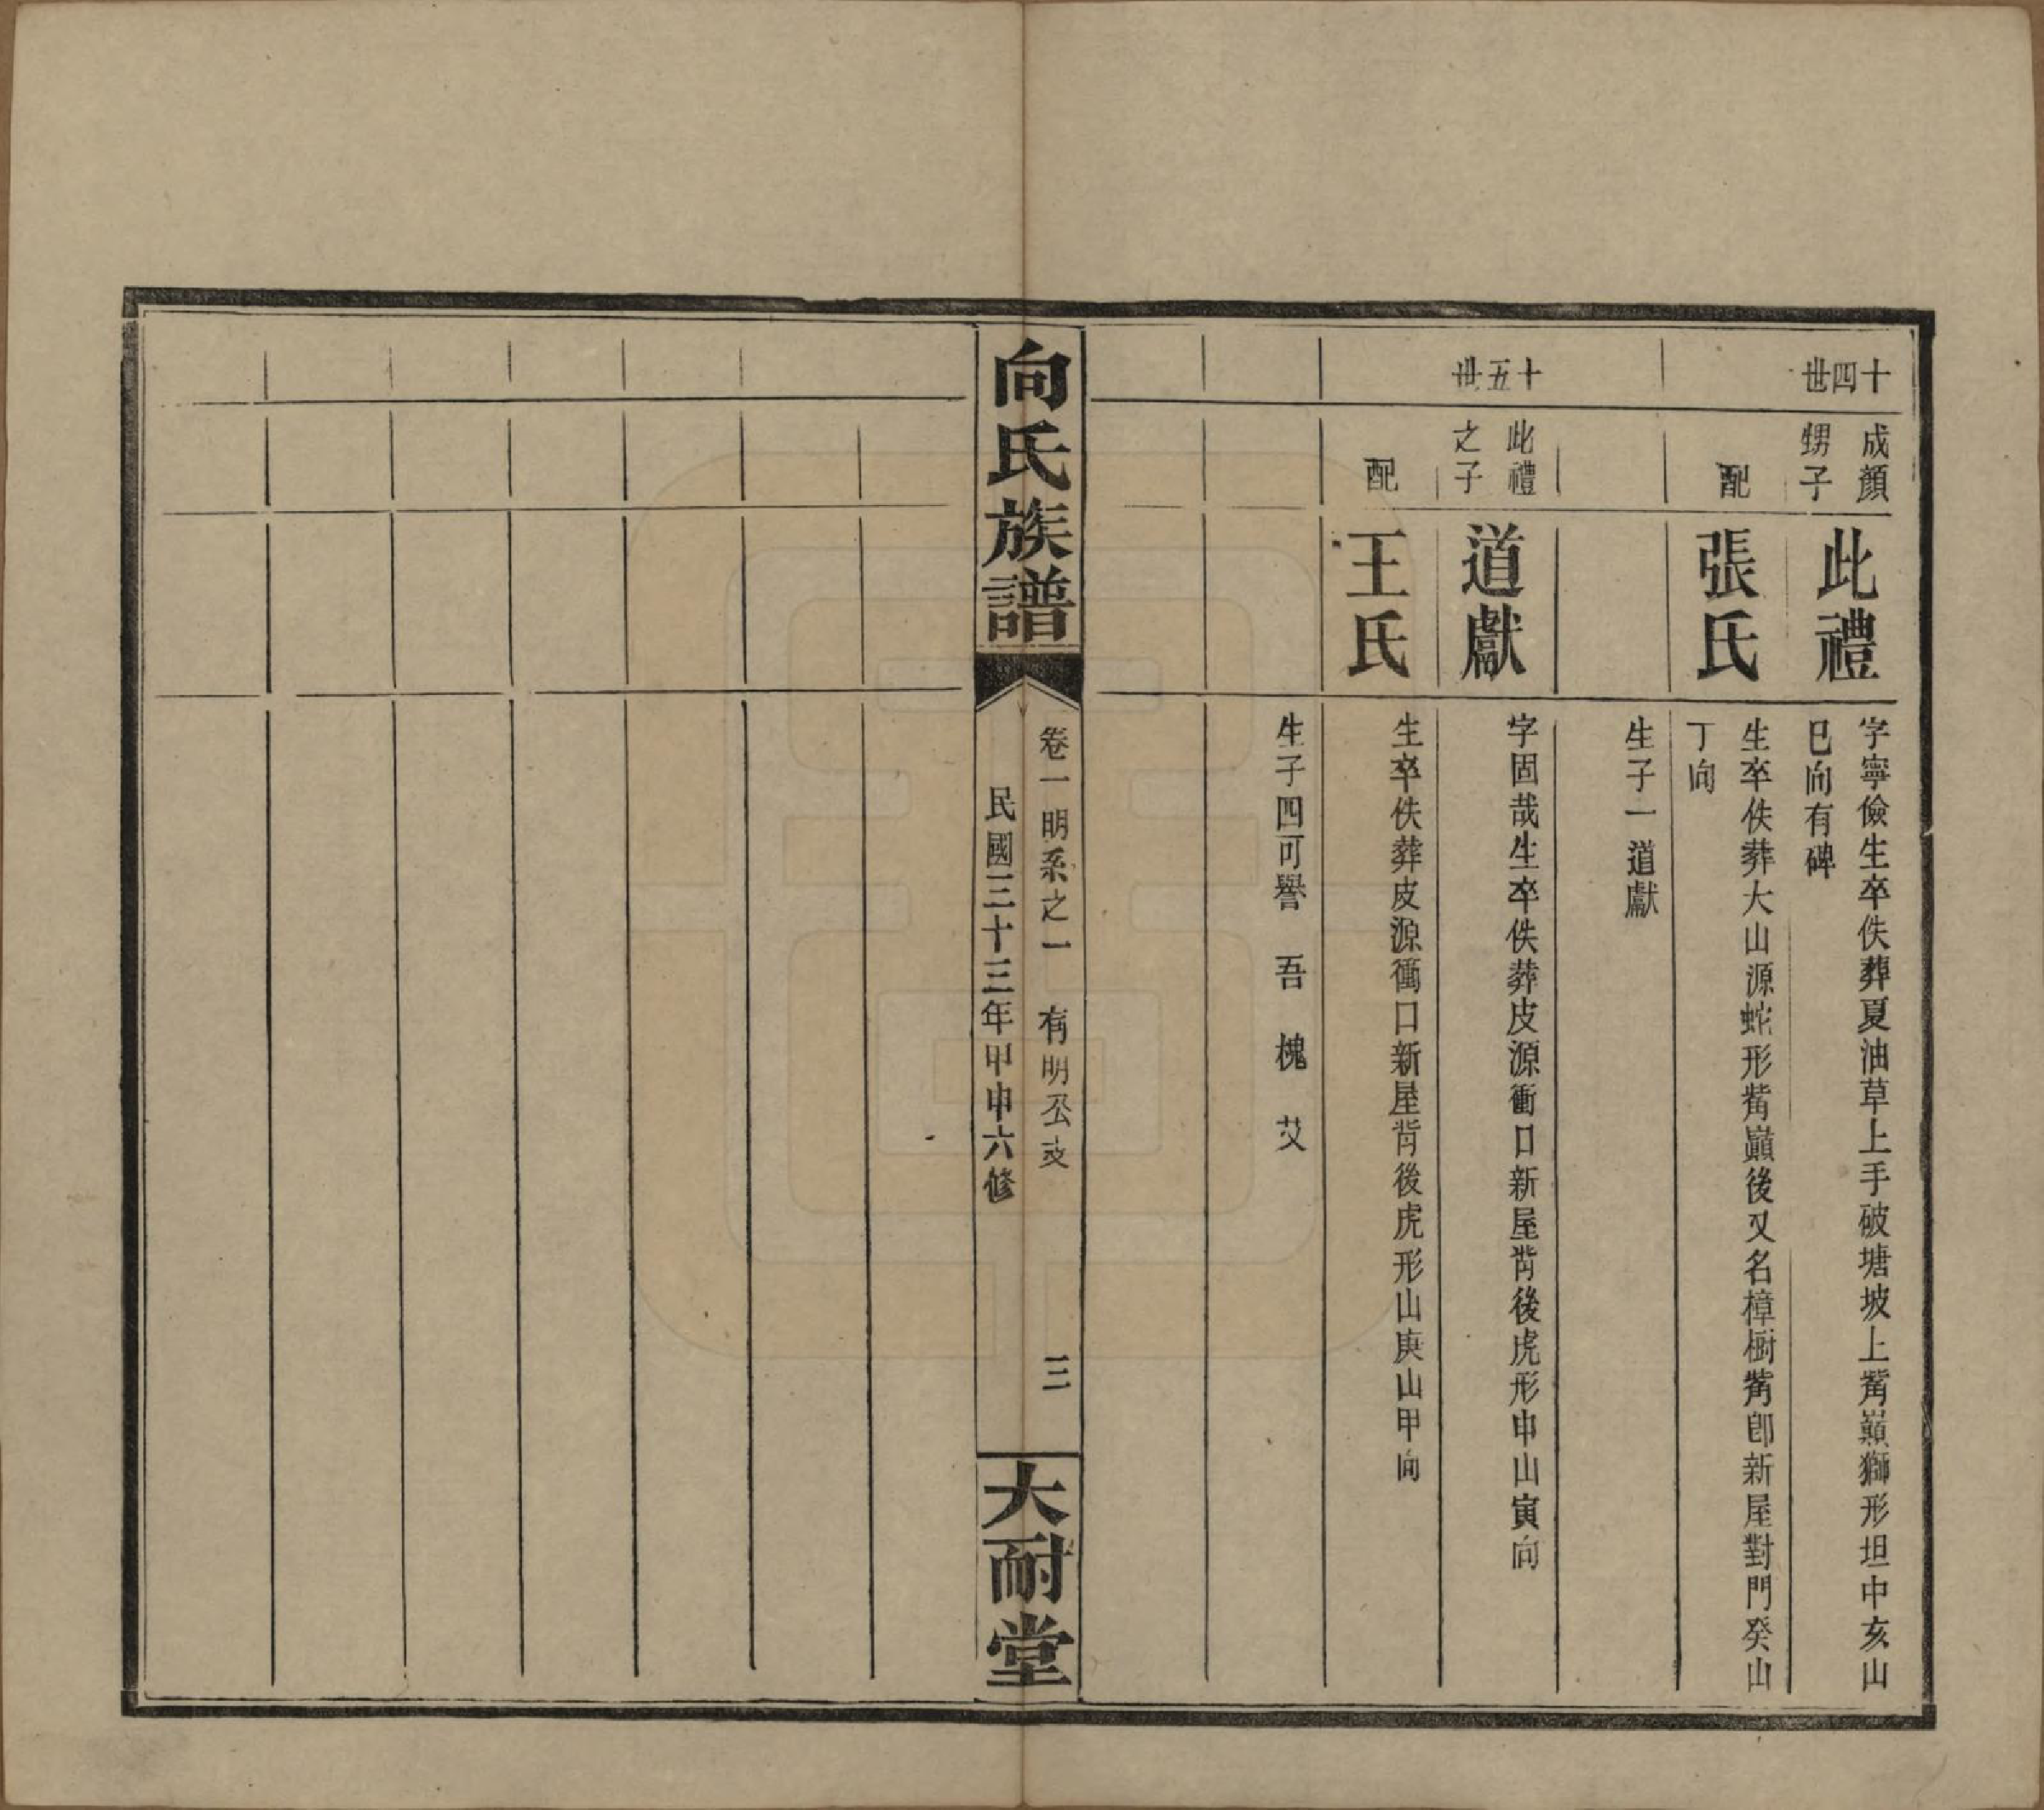 十四世
成顏
甥子
此禮
字寧儉生卒佚葬夏油草上手破塘坡上觜巔獅形坦中亥山
巳向有碑
配
張氏
生卒佚葬大山源蛇形觜巔後又名樟樹觜卽新屋對門癸山
丁向
生子一道獻
十五世
此禮
之子
道獻
字固哉生卒佚葬皮源衝口新屋背後虎形申山寅向
配
王氏
生卒佚葬皮源衝口新屋背後虎形山庚山甲向
生子四可譽 吾 槐 艾
向氏族譜
卷一明系之一 有明公支 三
民國三十三年甲申六修
大耐堂